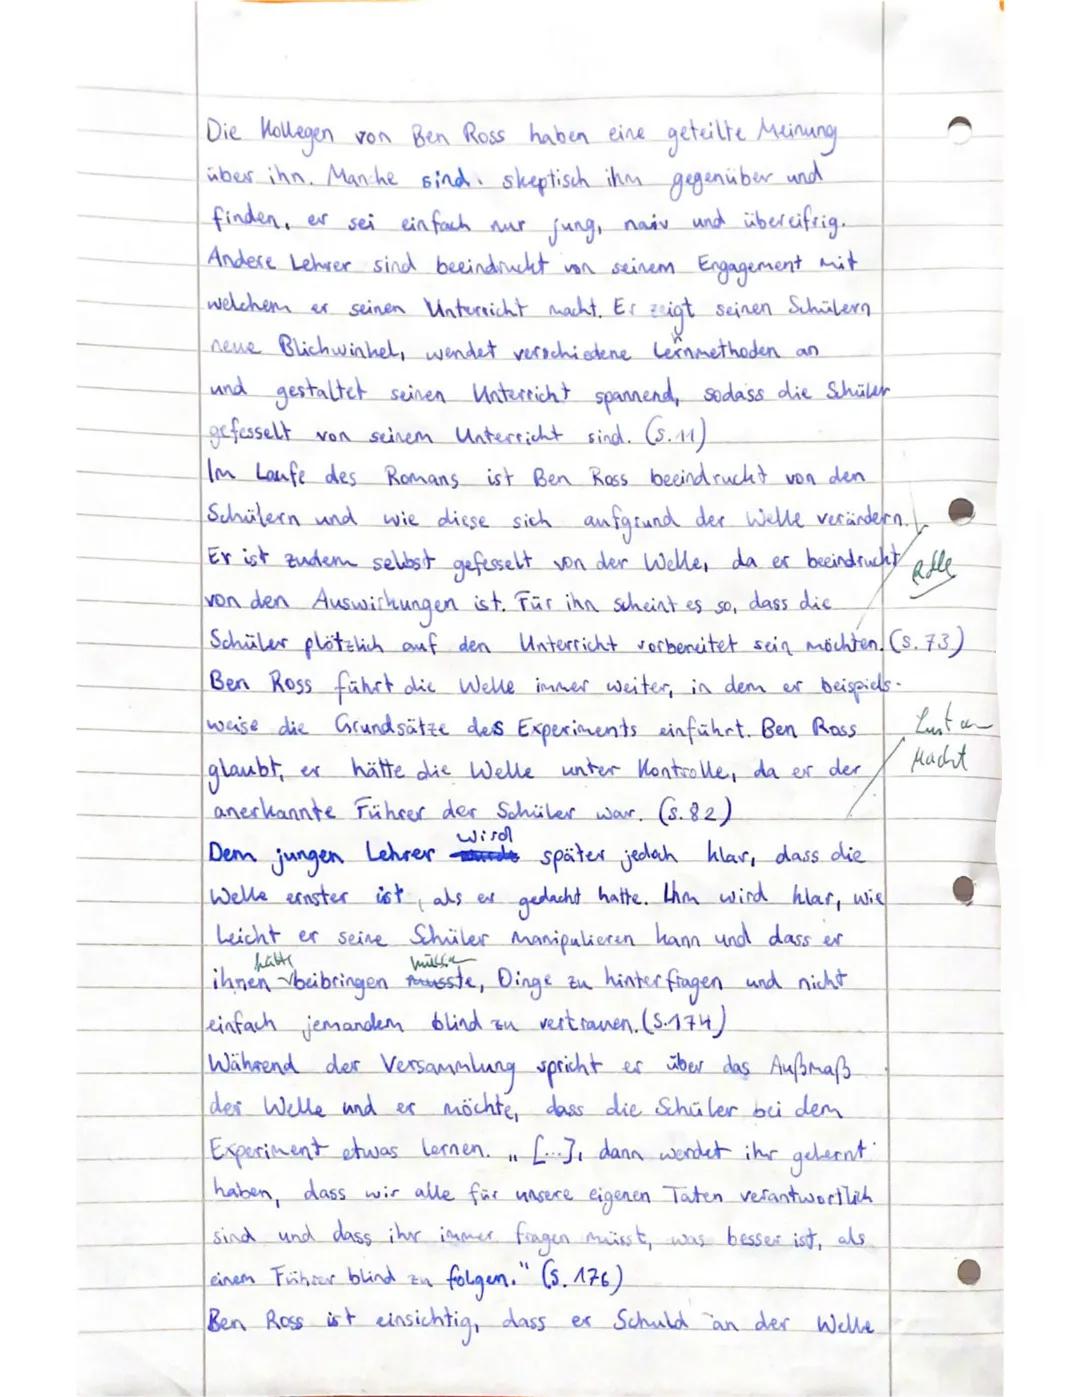 Die Kollegen von Ben Ross haben eine geteilte Meinung
über ihn. Manche sind skeptisch ihm gegenüber und
finden, er sei einfach nur jung, naiv und übereifrig.
Andere Lehrer sind beeindruckt von seinem Engagement mit
welchem er seinen Unterricht macht. Er zeigt seinen Schülern
neue Blickwinkel, wendet verschiedene Lernmethoden an
und gestaltet seinen Unterricht spannend, sodass die Schüler
gefesselt von seinem Unterricht sind. (S.11)
Im Laufe des Romans ist Ben Ross beeindruckt von den
Schülern und wie diese sich aufgrund der Welle verändern.
Er ist zudem selbst gefesselt von der Welle, da er beeindruckt
von den Auswirkungen ist. Für ihn scheint es so, dass die
Schüler plötzlich auf den Unterricht vorbereitet sein möchten. (S. 73)
Ben Ross führt die Welle immer weiter, in dem er beispiels-
weise die Grundsätze des Experiments einführt. Ben Ross
Lust an
Macht
glaubt, er hätte die Welle unter Kontrolle, da er der
anerkannte Führer der Schüler war. (S. 82)
wird
Dem jungen Lehrer wurde später jedoch klar, dass die
Welle ernster ist, als er gedacht hatte. Ihm wird klar, wie
leicht er seine Schüler manipulieren kann und dass er
hätte müssen
ihnen beibringen musste, Dinge zu hinterfragen und nicht
einfach jemandem blind zu vertrauen. (S.174)
Während der Versammlung spricht er über das Außmaß
der Welle und er möchte, dass die Schüler bei dem
Experiment etwas lernen. „[...], dann werdet ihr gelernt
haben, dass wir alle für unsere eigenen Taten verantwortlich
sind und dass ihr immer fragen müsst, was besser ist, als
einem Führer blind zu folgen." (S. 176)
Ben Ross ist einsichtig, dass er Schuld an der Welle